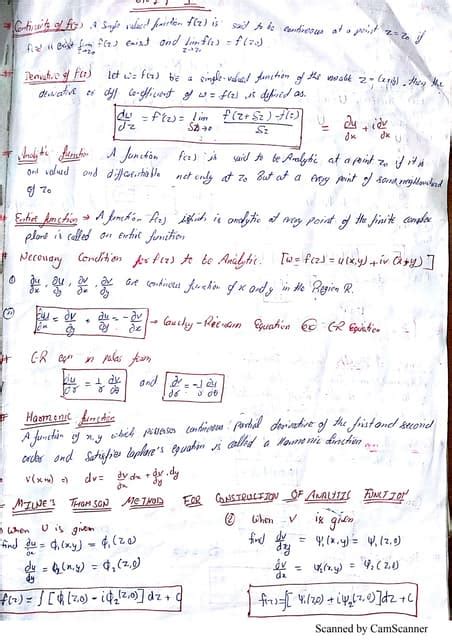 Continuity of f(z) : A Single valued function f(z) is said to be continuous at a point z = z₀ if
f(z₀) exist lim z→z₀ f(z) exist and lim z→z₀ f(z) = f(z₀)
Derivative of f(z) Let w = f(z) be a single-valued function of the variable z = (x+iy), then the
derivative or diff. Co-efficient of w = f(z) is defined as.
dw/dz = f'(z) = lim δz→0 f(z+δz) - f(z)/δz = ∂u/∂x + i∂v/∂x
Analytic function A function f(z) is said to be Analytic at a point z₀ if it is
one valued and differentiable not only at z₀ But at a every point of some neighbourhood
of z₀
Entire function → A function f(z) which is analytic at every point of the finite complex
plane is called an Entire function
Necessary Condition for f(z) to be Analytic. [w = f(z) = u(x,y) + iv(x,y)]
① ∂u/∂x, ∂u/∂y, ∂v/∂x, ∂v/∂y are continuous function of x and y in the Region R.
② ∂u/∂x = ∂v/∂y, ∂u/∂y = -∂v/∂x → Cauchy-Riemann Equation C-R Equation
C-R eqn in polar form
∂u/∂r = 1/r ∂v/∂θ and ∂v/∂r = -1/r ∂u/∂θ
Harmonic function
A function of x,y which possesses continuous partial derivative of the first and second
order and Satisfies Laplace's equation is called a Harmonic function
dv = ∂v/∂x dx + ∂v/∂y . dy
MILNE'S THOMSON METHOD FOR CONSTRUCTION OF ANALYTIC FUNCTION
when U is given
find ∂u/∂x = ϕ₁(x,y) = ϕ₁(z,0)
∂u/∂y = ϕ₂(x,y) = ϕ₂(z,0)
f(z) = ∫[ϕ₁(z,0) - iϕ₂(z,0)]dz + C
② When V is given
find ∂v/∂y = ψ₁(x,y) = ψ₁(z,0)
∂v/∂x = ψ₂(x,y) = ψ₂(z,0)
f(z) = ∫[ψ₁(z,0) + iψ₂(z,0)]dz + C
Scanned by CamScanner